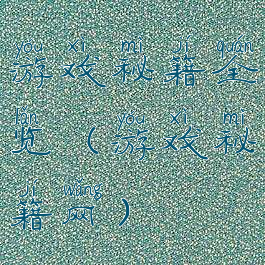 yóu xì mì jí quán
游戏秘籍全
lǎn yóu xì mì
览（游戏秘
jí wǎng
籍网）